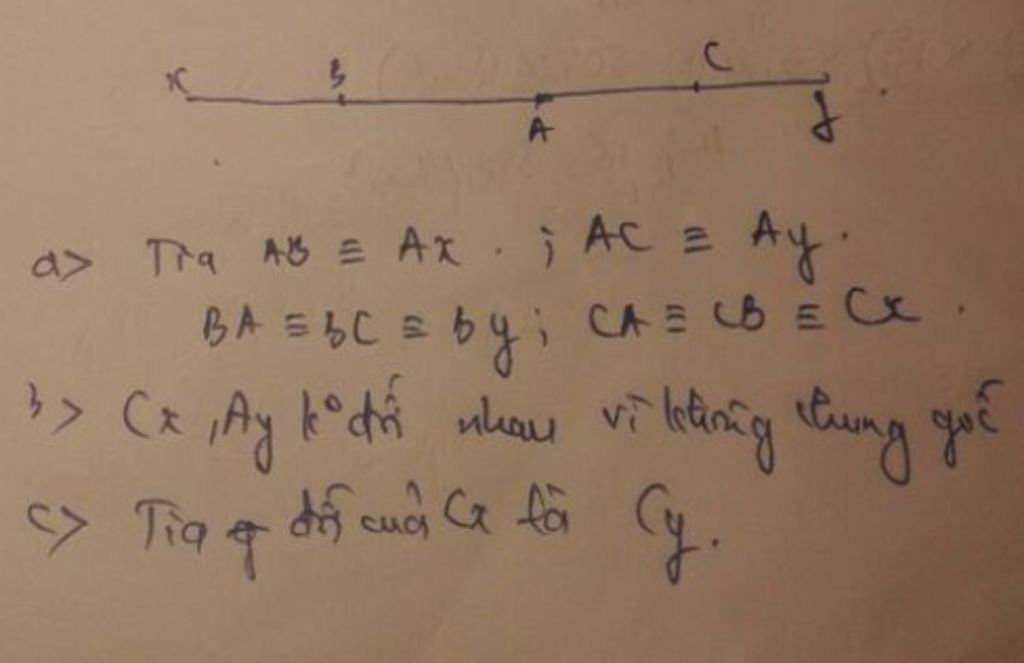 x B C
A y
a> Tia AB ≡ Ax . ; AC ≡ Ay .
BA ≡ BC ≡ By ; CA ≡ CB ≡ Cx .
b> Cx , Ay k° đối nhau vì không chung gốc
c> Tia đối của Cx là Cy .